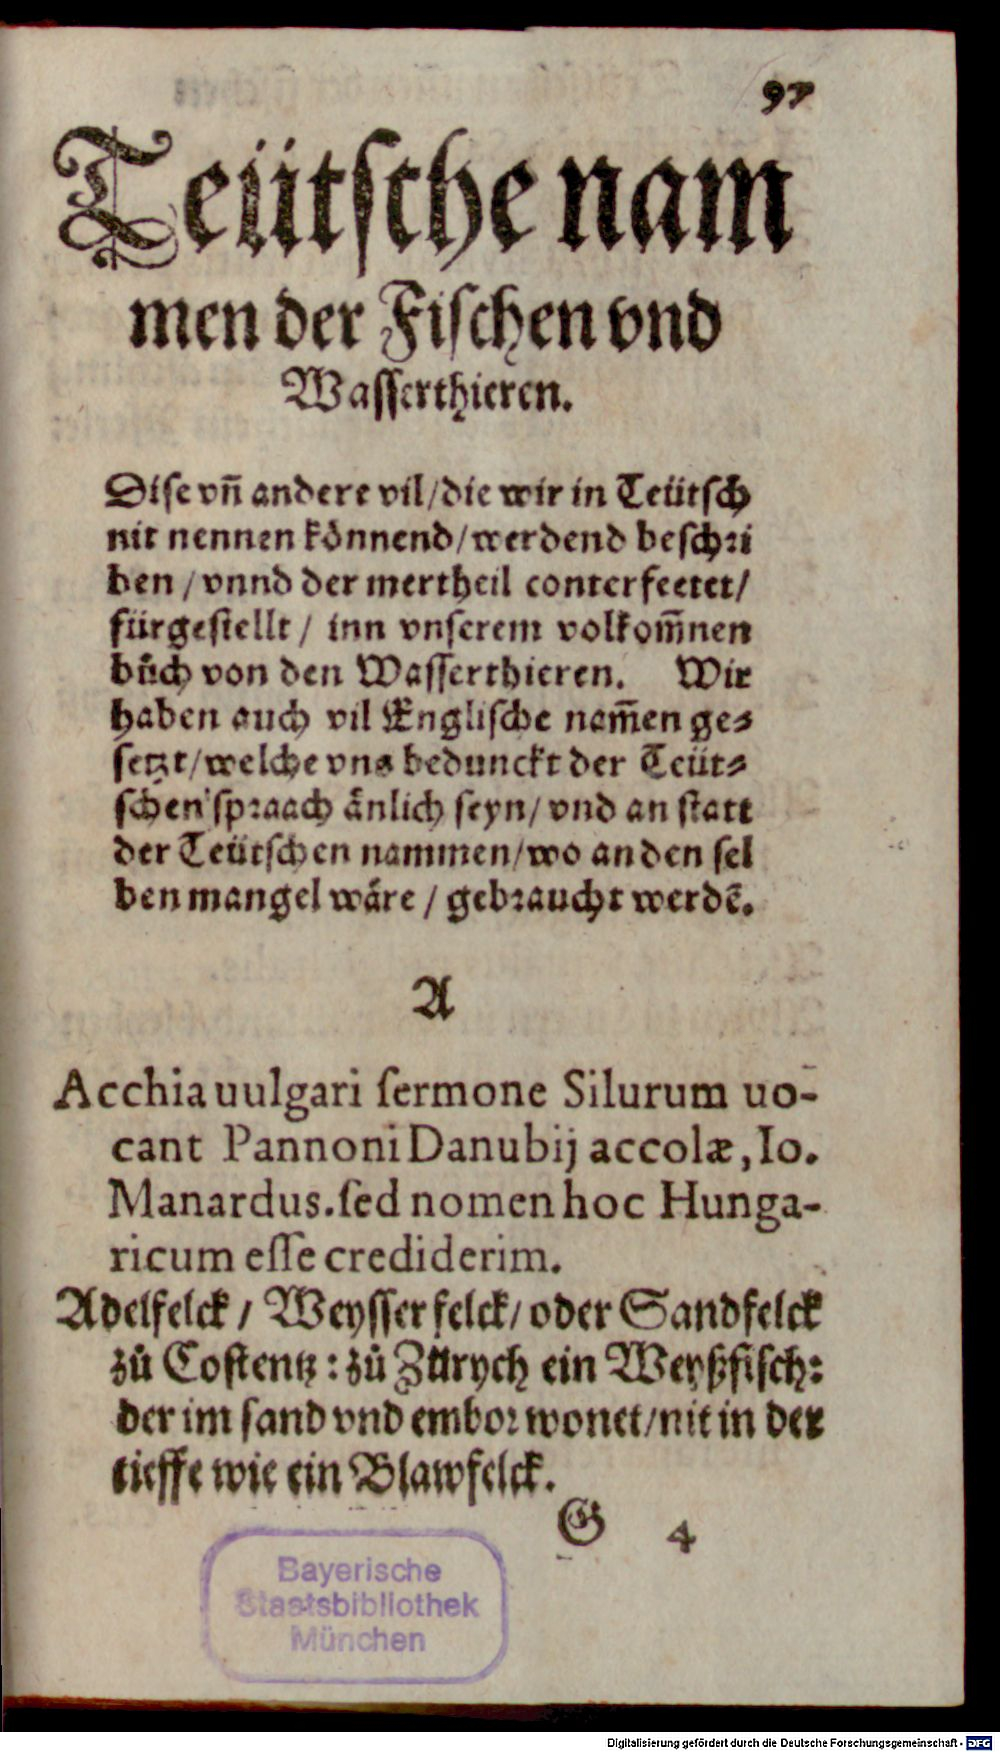 97
Teütsche nam
men der Fischen vnd
Wasserthieren.
Dise vn̄ andere vil/die wir in Teütsch
nit nennen könnend/werdend beschri
ben / vnnd der mertheil conterfeetet/
fürgestellt / inn vnserem volkom̄nen
bůch von den Wasserthieren. Wir
haben auch vil Englische nam̄en ge⸗
setzt/welche vns bedunckt der Teüt⸗
schen spraach änlich seyn/ vnd an statt
der Teütschen nammen/wo an den sel
ben mangel wäre / gebraucht werdē.
A
Acchia uulgari ſermone Silurum uo-
cant Pannoni Danubij accolæ, Io.
Manardus. ſed nomen hoc Hunga-
ricum eſſe crediderim.
Adelfelck / Weysser felck/ oder Sandfelck
zů Costentz : zů Zürych ein Weyßfisch:
der im sand vnd embor wonet/nit in der
tieffe wie ein Blawfelck.
G 4
Bayerische
Staatsbibliothek
München
Digitalisierung gefördert durch die Deutsche Forschungsgemeinschaft - DFG